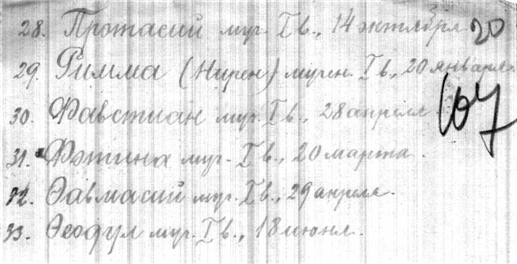 28. Протасий муч. I в., 14 октября 20
29. Римма (Нирен) мучен. I в., 20 января
107
30. Фавстиан муч. I в., 28 апреля
31. Фотина муч. I в., 20 марта.
32. Ѳавмасий муч. I в., 29 апреля.
33. Ѳеофул муч. I в., 18 июня.